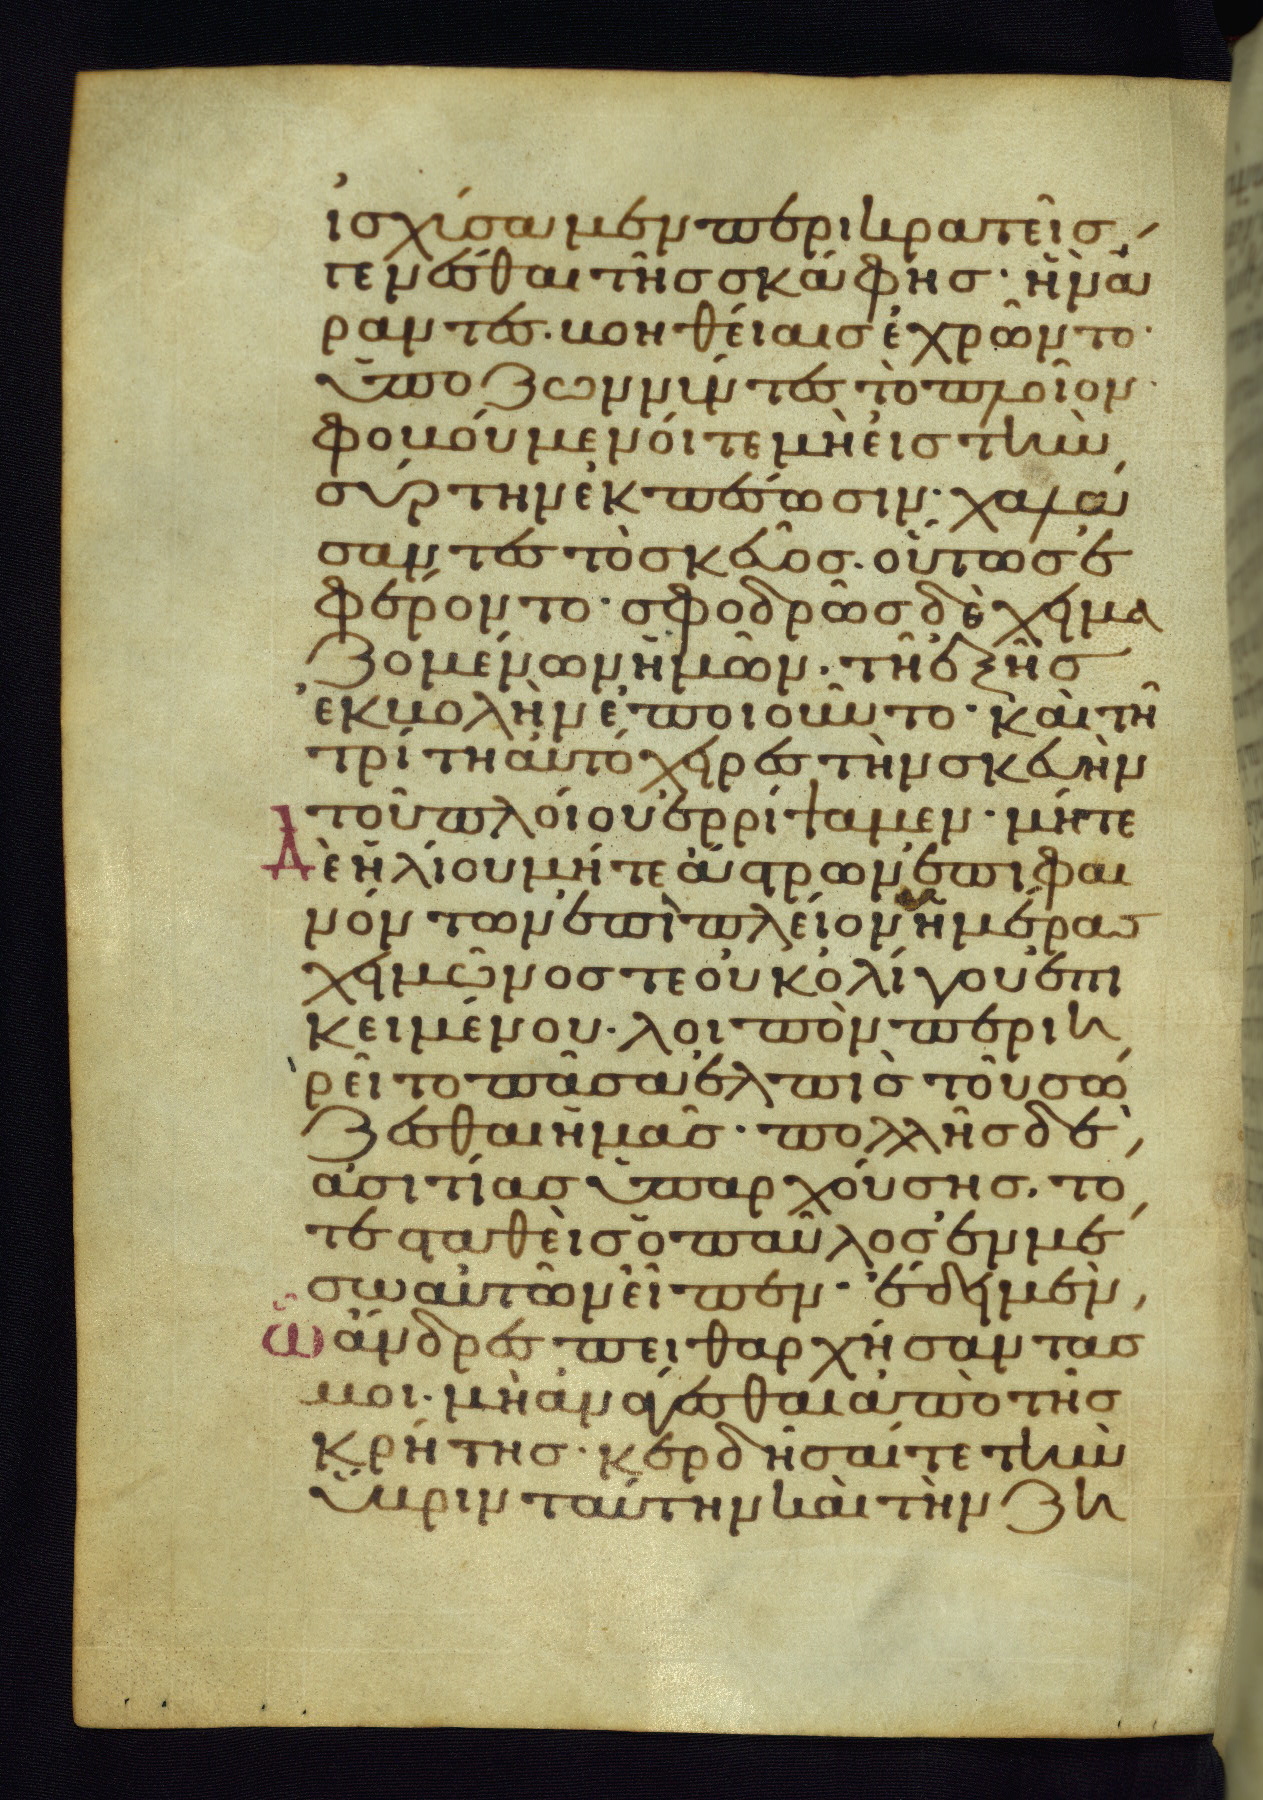 ἰσχύσαμεν περικρατεῖσ
γενέσθαι τῆσ σκάφησ· ἣν ἄ
ραντεσ. βοηθείαισ ἐχρῶντο·
ὑποζωννύντεσ τὸ πλοῖον·
φοβούμενόι τε μὴ εἰσ τὴν
σύρτην ἐκπέσωσιν· χαλά
σαντεσ τὸ σκεῦοσ. οὕτωσ ἐ
φέροντο· σφοδρῶσ δὲ χειμα
ζομένων ἡμῶν. τῆ ἑξῆσ
ἐκβολὴν ἐποιοῦντο· καὶ τῆ
τρίτη αὐτόχειρεσ τὴν σκευὴν
τοῦ πλοίου ἐρρίψαμεν· μήτε
Δὲ ἡλίου μήτε ἄστρων ἐπιφαι
νόντων ἐπὶ πλείονασ ἡμέρασ
χειμῶνοσ τε οὐκ ὀλίγου ἐπι
κειμένου. λοιπὸν περιῃ
ρεῖτο πᾶσα ἐλπὶσ τοῦ σώ
ζεσθαι ἡμᾶσ· πολλῆσ δὲ
ἀσιτίασ ὑπαρχούσησ. τό
τε σταθεὶσ ὁ παῦλοσ ἐν μέ
σω αὐτῶν εἶπεν· ἔδει μὲν
ὦ ἄνδρεσ πειθαρχήσαντασ
μοι. μὴ ἀνάγεσθαι ἀπὸ τῆσ
κρήτησ· κερδῆσαί τε τὴν
ὕβριν ταύτην καὶ τὴν ζη